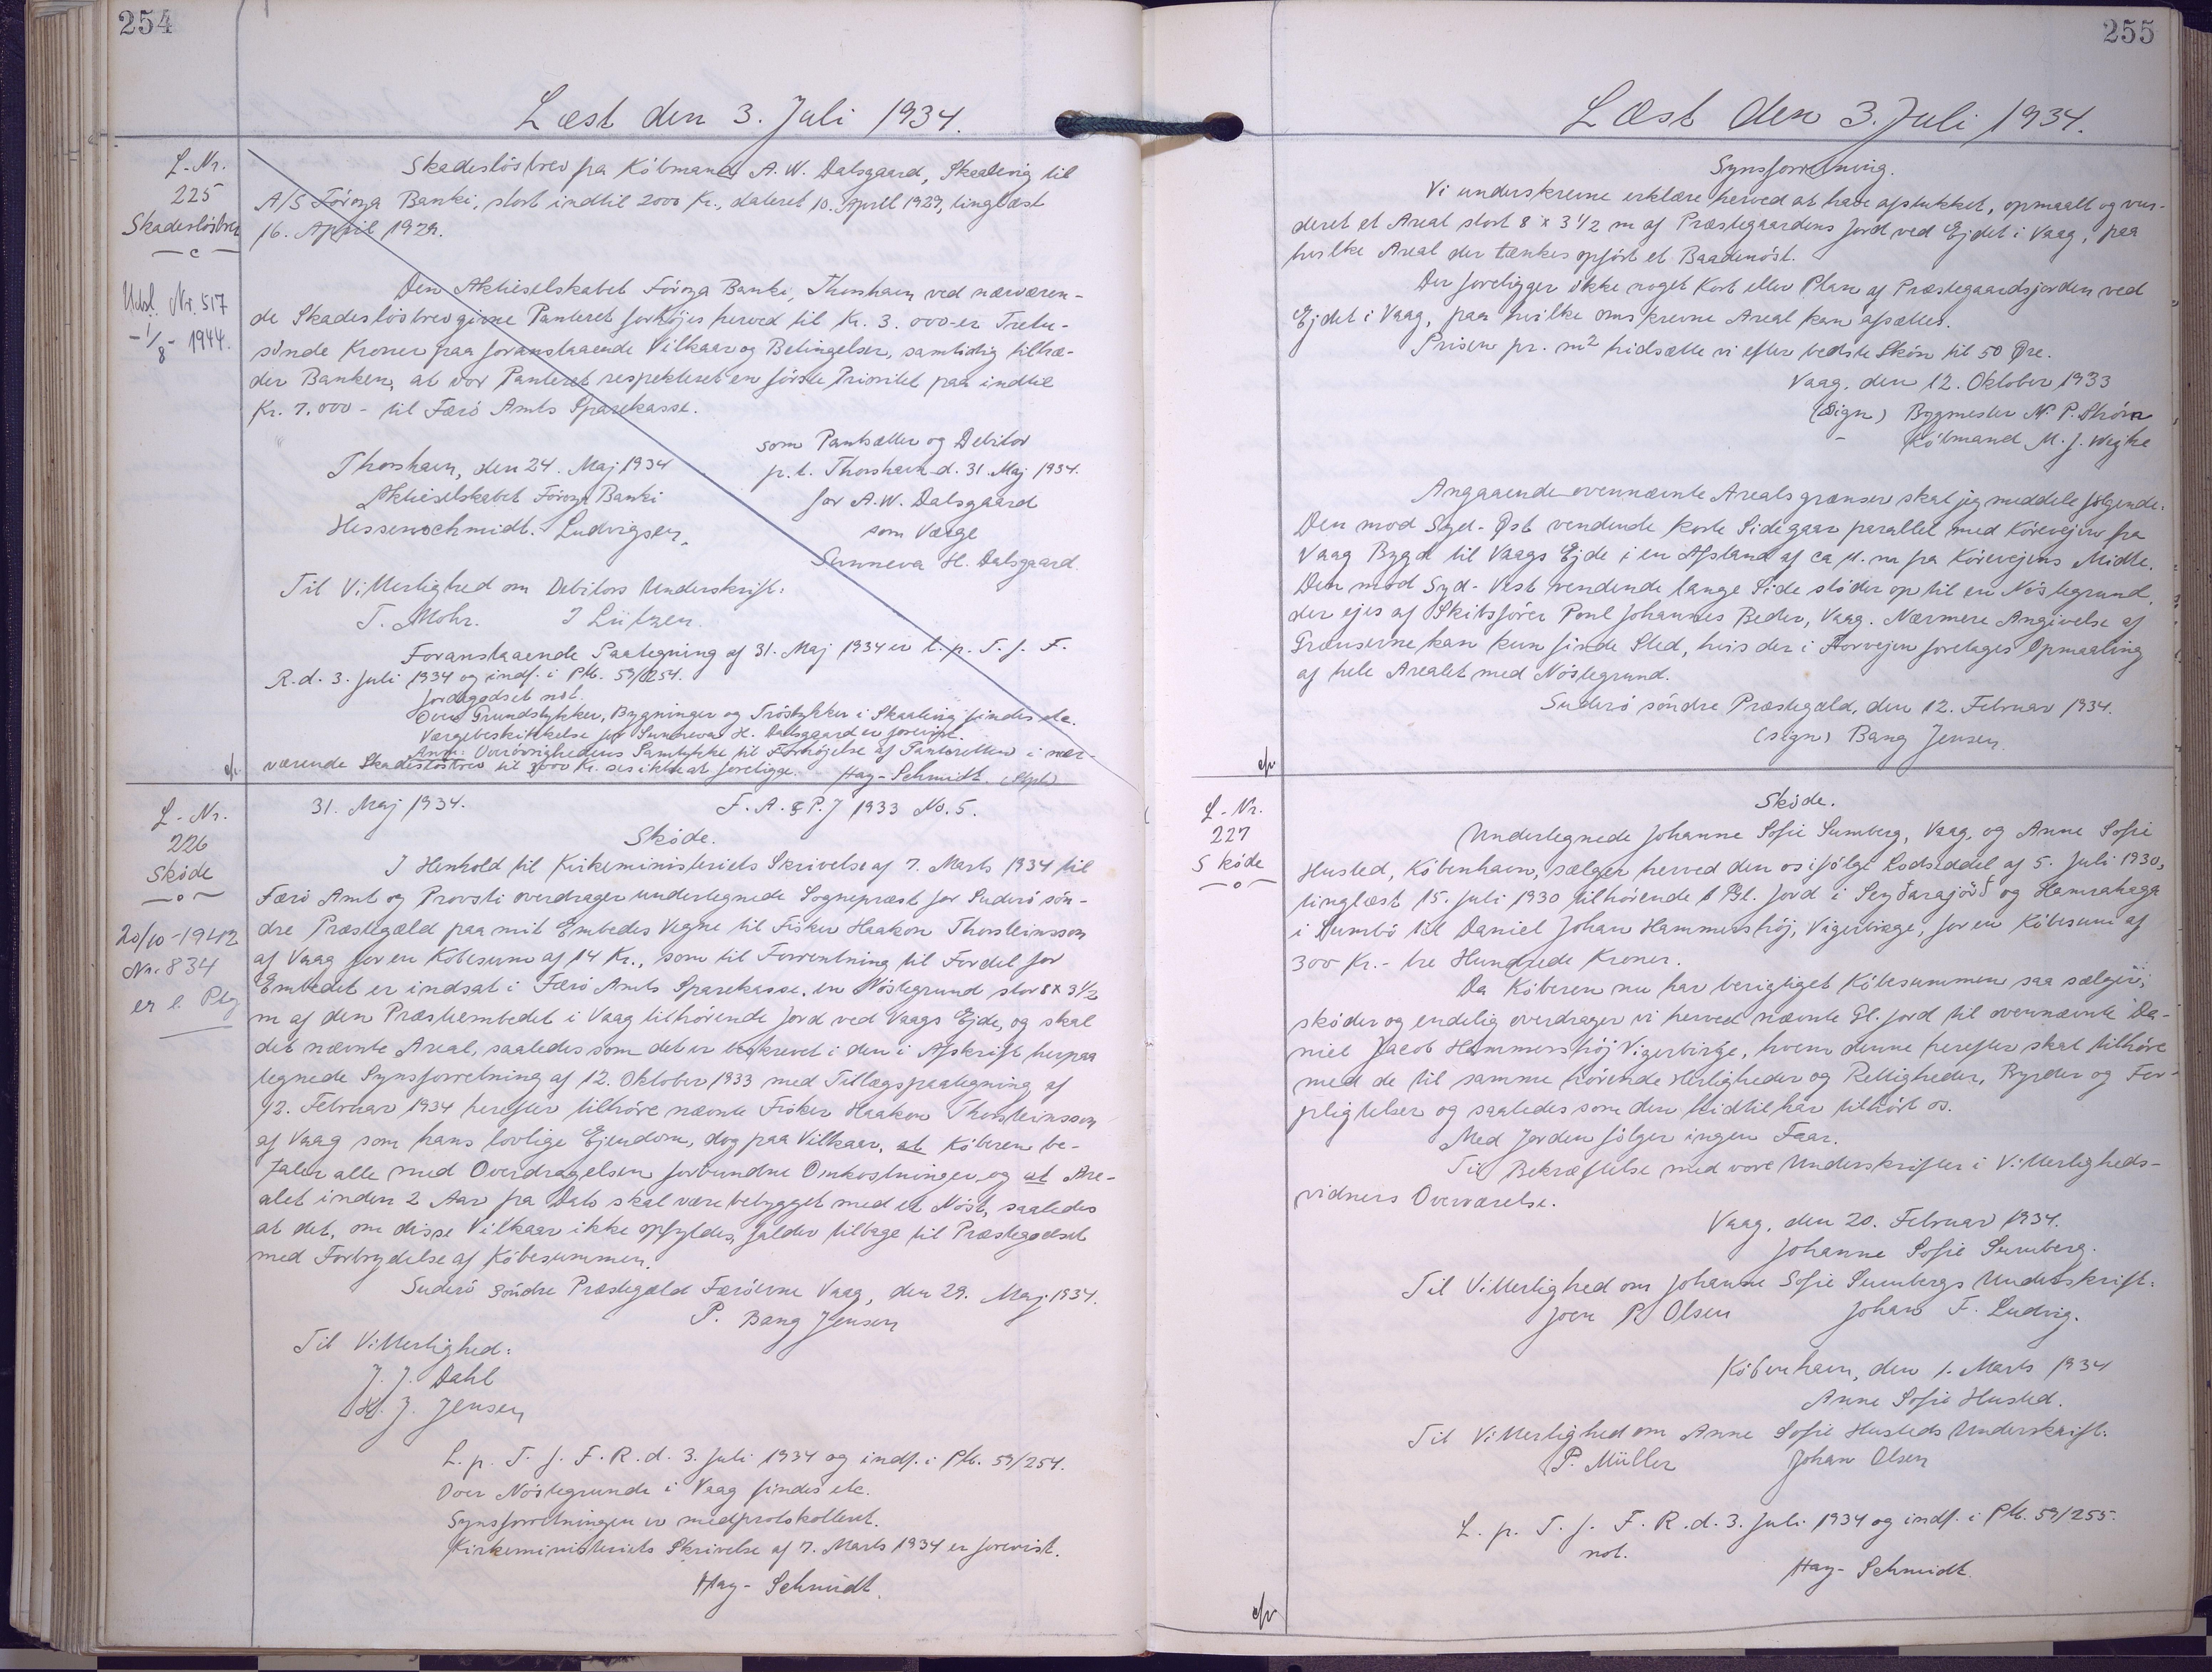 254
Læst den 3. Juli 1934.
L-Nr.
225
Skadeslösbrev
Udsl. Nr. 517
- 1/8 - 1944.
Skadeslösbrev fra Köbmand A. W. Dalsgaard, Skaalevig til
A/S Föroya Banki, stort indtil 2000 Kr., dateret 10. April 1929, tinglæst
16. April 1929.
Den Aktieselskabet Föroya Banki, Thorshavn ved nærværen-
de Skadeslösbrev givne Panteret forhöjes herved til Kr. 3.000-er Tretu-
sinde Kroner paa foranstaaende Vilkaar og Betingelser, samtidig tiltræ-
der Banken, at vor Panteret respekterer en förste Prioritet paa indtil
Kr. 7.000 - til Færö Amts Sparekasse.
Thorshavn, den 24. Maj 1934
Aktieselskabet Föroya Banki
Hessenschmidt. Ludvigsen.
som Pantsætter og Debitor
p.t. Thorshavn d. 31. Maj 1934.
for A.W. Dalsgaard
som Værge
Sunneva H. Dalsgaard.
Til Vitterlighed om Debitors Underskrift:
T. Mohr. I Lützen.
Foranstaaende Paategning af 31. Maj 1934 er l. p. T. f. F.
R. d. 3. Juli 1934 og indf. i Ptb. 59/254.
Jordegodset not.
Over Grundstykker, Bygninger og Tröstykker i Skaalevig findes etc.
Værgebeskikkelse for Sunneva H. Dalsgaard er forevist.
Anm: Overövrighedens Samtykke til Forhöjelse af Panteretten i nær-
værende Skadeslösbrev til 3000 Kr. ses ikke at foreligge. Hay-Schmidt.
L-Nr.
226
Sköde
20/10-1942
Nr. 834
er l. Ptg
31. Maj 1934. F. A. & P. J 1933 No. 5.
Sköde.
I Henhold til Kirkeministeriets Skrivelse af 7. Marts 1934 til
Færö Amt og Provsti overdrager undertegnede Sognepræst for Suderö sön-
dre Præstegæld paa mit Embedes Vegne til Fisker Haakon Thorsteinsson
af Vaag for en Köbesum af 14 Kr., som til Forrentning til Fordel for
Embedet er indsat i Færö Amts Sparekasse, en Nöstegrund stor 8 x 3½
m af den Præsteembedet i Vaag tilhörende Jord ved Vaags Ejde, og skal
det nævnte Areal, saaledes som det er beskrevet i den i Afskrift herpaa
tegnede Synsforretning af 12. Oktober 1933 med Tillægspaategning af
12. Februar 1934 herefter tilhöre nævnte Fisker Haakon Thorsteinsson
af Vaag som hans lovlige Ejendom, dog paa Vilkaar, at Köberen be-
taler alle med Overdragelsen forbundne Omkostninger, og at Are-
alet inden 2 Aar fra Dato skal være bebygget med et Nöst, saaledes
at det, om disse Vilkaar ikke opfyldes, falder tilbage til Præstegodset
med Fortrydelse af Köbesummen.
Suderö Söndre Præstegæld Færöerne Vaag, den 29. Maj 1934.
P. Bang Jensen
Til Vitterlighed:
J. J. Dahl
H. J. Jensen
L. p. T. f. F. R. d. 3. Juli 1934 og indf. i Ptb. 59/254.
Over Nöstegrunde i Vaag findes etc.
Synsforretningen er medprotokolleret.
Kirkeministeriets Skrivelse af 7. Marts 1934 er forevist.
Hay-Schmidt.
255
Læst den 3. Juli 1934.
Synsforretning.
Vi underskrevne erklære herved at have afstukket, opmaalt og vur-
deret et Areal stort 8 x 3 1/2 m af Præstegaardens Jord ved Ejdet i Vaag, paa
hvilke Areal der tænkes opfört et Baadenöst.
Der foreligger ikke noget Kort eller Plan af Præstegaardsjorden ved
Ejdet i Vaag, paa hvilke omskrevne Areal kan afsættes.
Prisen pr. m² fridsætte vi efter bedste Skön til 50 Øre.
Vaag, den 12. Oktober 1933
(Sign) Bygmester N. P. Thöm
- Köbmand M. J. Weihe
Angaaende ovennævnte Areals grænser skal jeg meddele fölgende.
Den mod Syd-Øst vendende korte Side gaar parallel med Körevejen fra
Vaag Bygd til Vaags Ejde i en Afstand af ca 11. m fra Körevejens Midte.
Den mod Syd-Vest vendende lange Side stöder op til en Nöstegrund,
der ejes af Skibsförer Poul Johannes Beder, Vaag. Nærmere Angivelse af
Grænserne kan kun finde Sted, hvis der i Forvejen foretages Opmaaling
af hele Arealet med Nöstegrund.
Suderö söndre Præstegæld, den 12. Februar 1934.
(sign) Bang Jensen.
L-Nr.
227
Sköde
Sköde.
Undertegnede Johanne Sofie Sumberg, Vaag, og Anne Sofie
Husted, Köbenhavn, sælger herved den os ifölge Lodseddel af 5. Juli 1930,
tinglæst 15. Juli 1930 tilhörende 1 Gl. Jord i Seyðarajörð og Hamrahaga
i Sumbö til Daniel Johan Hammershöj, Vigerbirge, for en Köbesum af
300 Kr.- tre Hundrede Kroner.
Da Köberen nu har berigtiget Köbesummen saa sælger,
sköder og endelig overdrager vi herved nævnte Gl. Jord til ovennævnte Da-
niel Jacob Hammershöj Vigerbirge, hvem denne herefter skal tilhöre
med de til samme hörende Herligheder og Rettigheder, Byrder og For-
pligtelser og saaledes som den hidtil har tilhört os.
Med Jorden fölger ingen Faar.
Til Bekræftelse med vore Underskrifter i Vitterligheds-
vidners Overværelse.
Vaag, den 20. Februar 1934.
Johanne Sofie Sumberg.
Til Vitterlighed om Johanne Sofie Sumbergs Underskrift:
Joen P. Olsen Johan F. Ludvig.
Köbenhavn, den 1. Marts 1934
Anne Sofie Husted.
Til Vitterlighed om Anne Sofie Husteds Underskrift.
P. Müller Johan Olsen
L. p. T. f. F. R. d. 3. Juli 1934 og indf. i Ptb. 59/255.
not.
Hay-Schmidt.